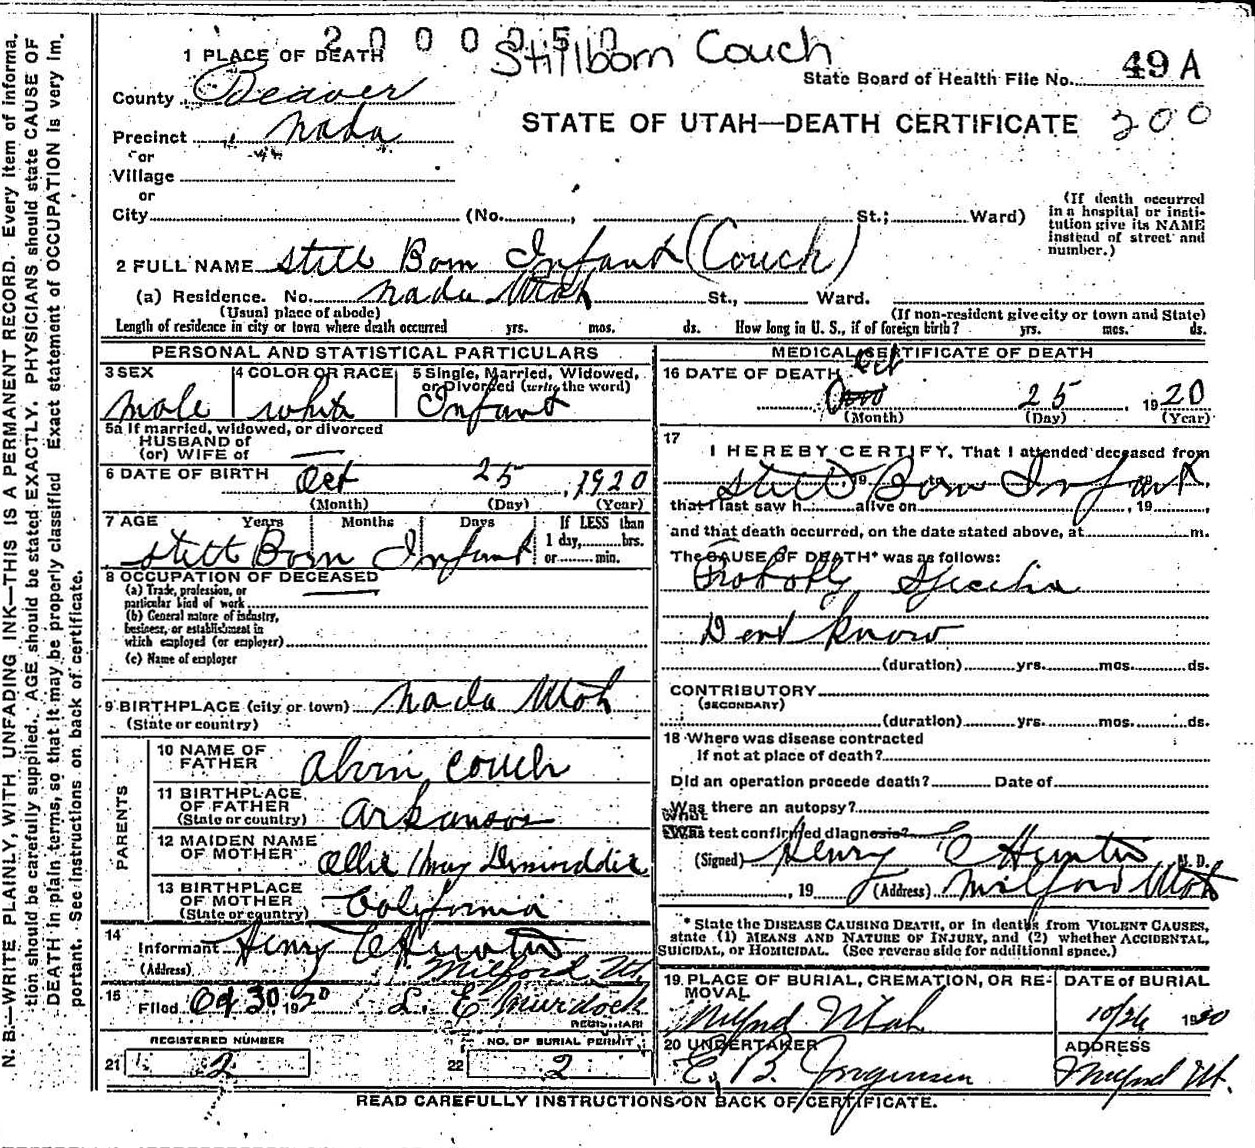 2000050 Stillborn Couch
1 PLACE OF DEATH
State Board of Health File No. 49 A
County Beaver
STATE OF UTAH—DEATH CERTIFICATE 300
Precinct Nada
or
Village
or
City (No. , St.; Ward)
(If death occurred in a hospital or insti-
tution give its NAME
instead of street and
number.)
2 FULL NAME Still Born Infant (Couch)
(a) Residence. No. Nada Utah St., Ward.
(Usual place of abode) (If non-resident give city or town and State)
Length of residence in city or town where death occurred yrs. mos. ds. How long in U. S., if of foreign birth? yrs. mos. ds.
PERSONAL AND STATISTICAL PARTICULARS
3 SEX 4 COLOR OR RACE 5 Single, Married, Widowed,
or Divorced (write the word)
Male White Infant
5a If married, widowed, or divorced
HUSBAND of
(or) WIFE of
6 DATE OF BIRTH Oct 25, 1920
(Month) (Day) (Year)
7 AGE Years Months Days If LESS than
1 day, hrs.
or min.
Still Born Infant
8 OCCUPATION OF DECEASED
(a) Trade, profession, or
particular kind of work
(b) General nature of industry,
business, or establishment in
which employed (or employer)
(c) Name of employer
9 BIRTHPLACE (city or town) Nada Utah
(State or country)
PARENTS
10 NAME OF
FATHER Alvin Couch
11 BIRTHPLACE
OF FATHER
(State or country) Arkansas
12 MAIDEN NAME
OF MOTHER Ollie May
13 BIRTHPLACE
OF MOTHER
(State or country) California
14
Informant Henry E Hunter
(Address) Milford Ut.
15
Filed Oct 30 1920 L. E Murdock
REGISTRAR
REGISTERED NUMBER NO. OF BURIAL PERMIT
21 2 22 2
MEDICAL CERTIFICATE OF DEATH
16 DATE OF DEATH
Oct 25, 1920
(Month) (Day) (Year)
17
I HEREBY CERTIFY, That I attended deceased from
Still Born Infant
that I last saw h alive on , 19 ,
and that death occurred, on the date stated above, at m.
The CAUSE OF DEATH* was as follows:
Probably
Dont know
(duration) yrs. mos. ds.
CONTRIBUTORY
(SECONDARY)
(duration) yrs. mos. ds.
18 Where was disease contracted
If not at place of death?
Did an operation precede death? Date of
Was there an autopsy?
What test confirmed diagnosis?
(Signed) Henry E Hunter M. D.
, 19 (Address) Milford Utah
* State the DISEASE CAUSING DEATH, or in deaths from VIOLENT CAUSES,
state (1) MEANS AND NATURE OF INJURY, and (2) whether ACCIDENTAL,
SUICIDAL, or HOMICIDAL. (See reverse side for additional space.)
19 PLACE OF BURIAL, CREMATION, OR RE-
MOVAL DATE OF BURIAL
Milford Utah 10/26 1920
20 UNDERTAKER ADDRESS
E. B. Jorgensen Milford Ut.
READ CAREFULLY INSTRUCTIONS ON BACK OF CERTIFICATE.
N. B.—WRITE PLAINLY, WITH UNFADING INK—THIS IS A PERMANENT RECORD. Every item of informa-
tion should be carefully supplied. AGE should be stated EXACTLY. PHYSICIANS should state CAUSE OF
DEATH in plain terms, so that it may be properly classified Exact statement of OCCUPATION is very im-
portant. See instructions on back of certificate.